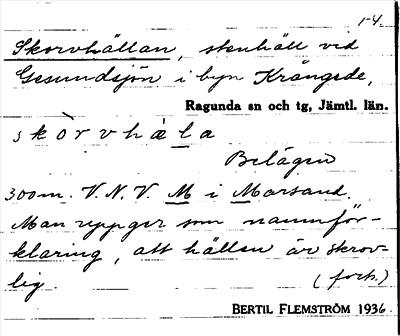 1-4.
Skorvhällan, stenhäll vid
Gesundsjön i byn Krångede,
Ragunda sn och tg, Jämtl. län.
skòrvhàla
Belägen
300 m. V.N.V. M i Marsand.
Man uppger som namnför-
klaring, att hällen är skrov-
lig.
(forts.)
BERTIL FLEMSTRÖM 1936